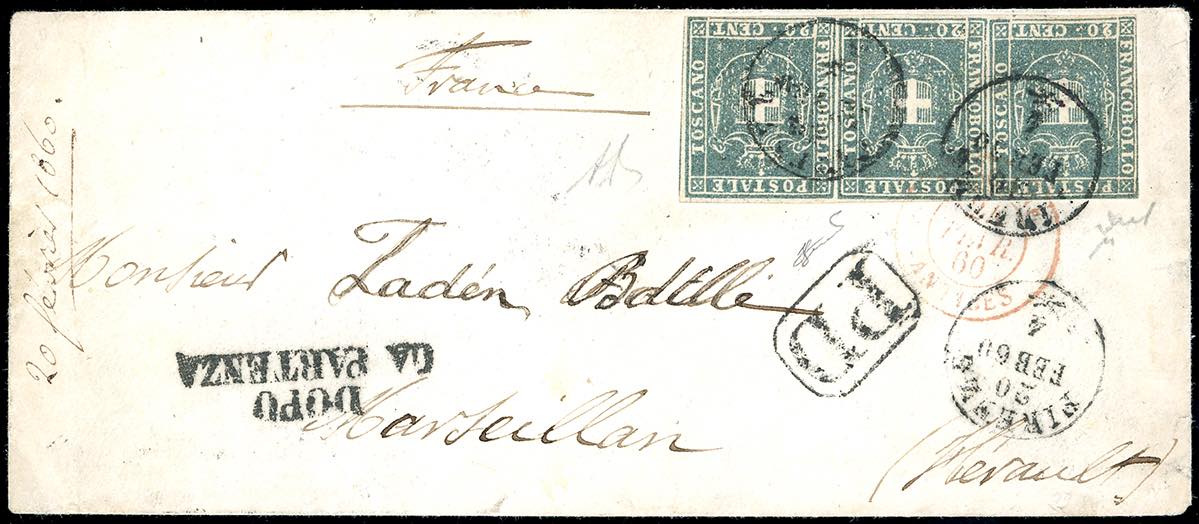 France
20 CENT. 20 CENT. 20 CENT.
FRANCOBOLLO FRANCOBOLLO FRANCOBOLLO
TOSCANO TOSCANO TOSCANO
POSTALE POSTALE POSTALE
20 février 1860.
60
ANTIBES
PD
Monsieur Ladén
DOPO
LA PARTENZA
FIRENZE
20
FEB 60
4
Marseillan
(Hérault)